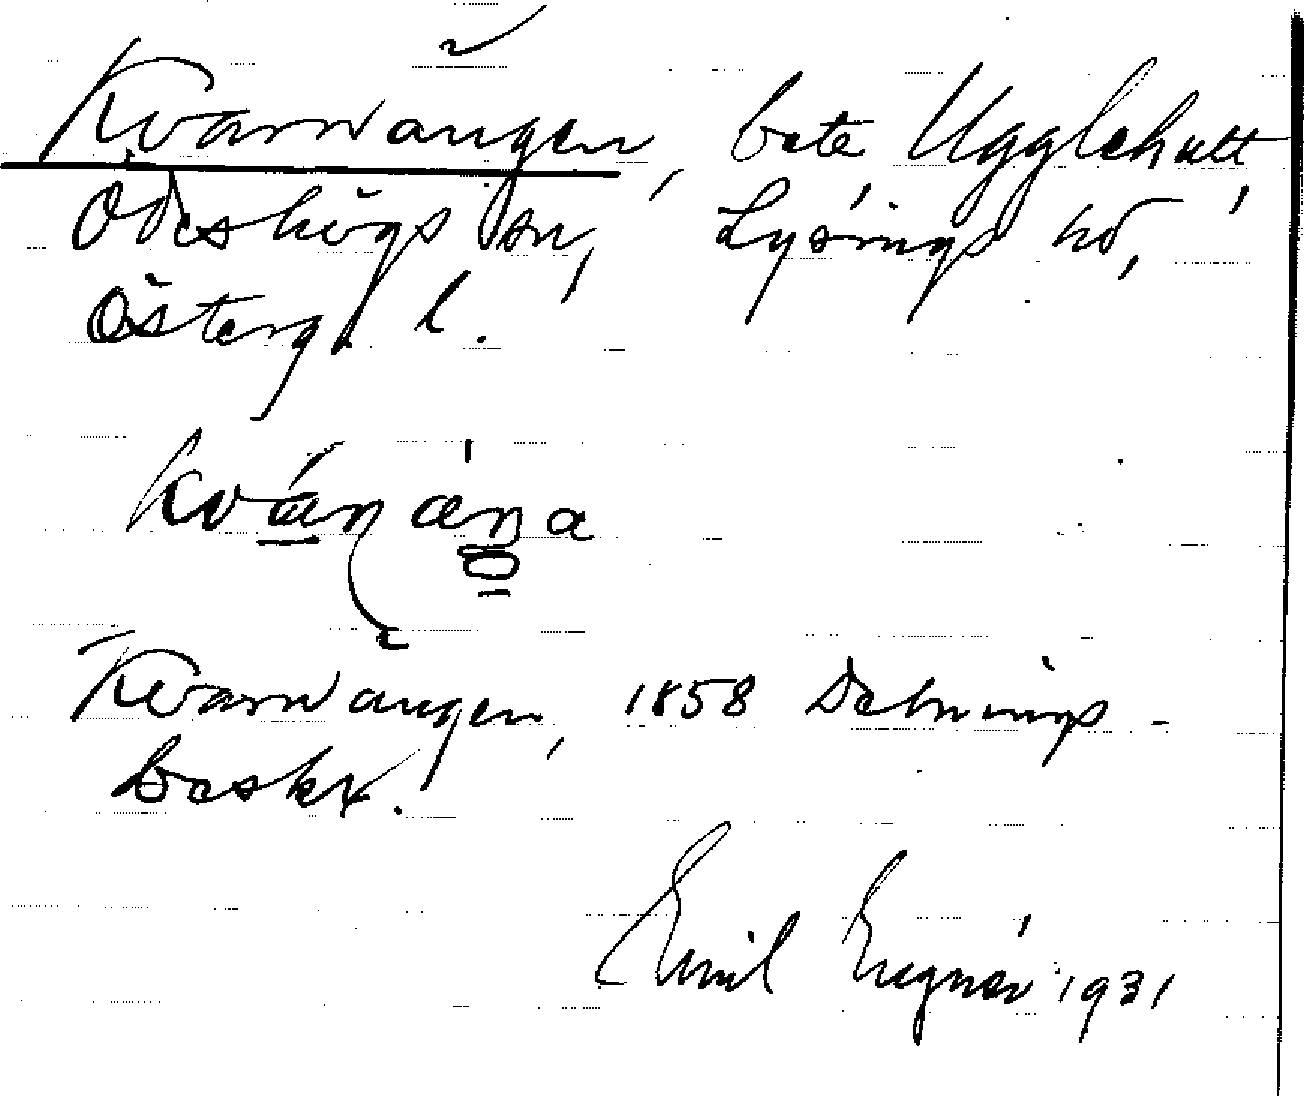 Kvarnängen, bete Ugglehult,
Ödeshögs sn, Lysings hd,
Österg. l.
Kvarnängen, 1858 Delnings-
beskr.
Emil Engnér 1931